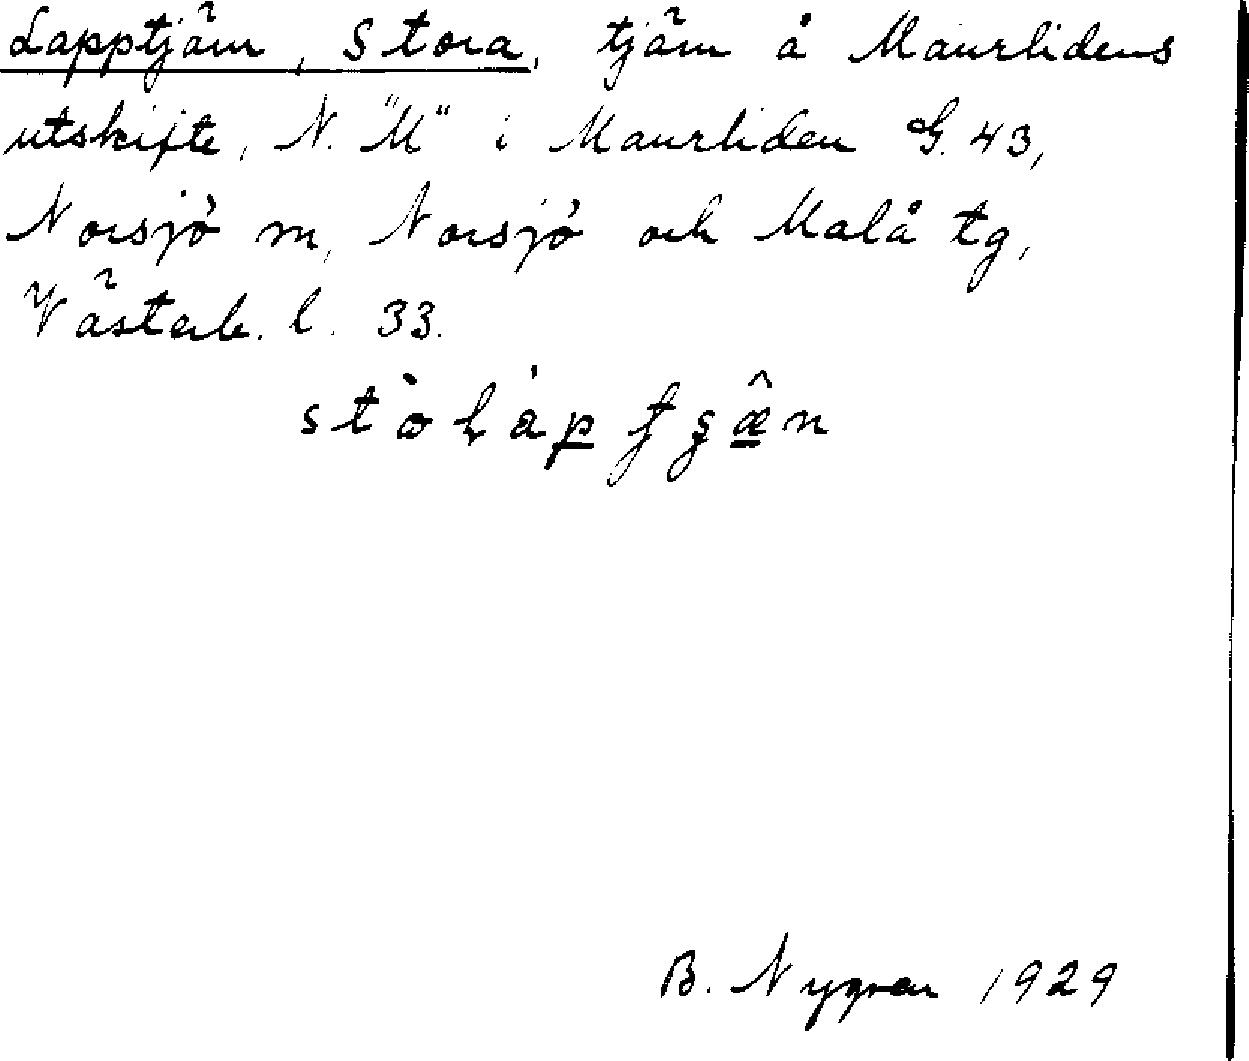 Lapptjärn, Stora, tjärn å Maurlidens
utskifte, N. "M" i Maurliden G. 43,
Norsjö m, Norsjö och Malå tg,
Västerb. l. 33.
B. Nygren 1929